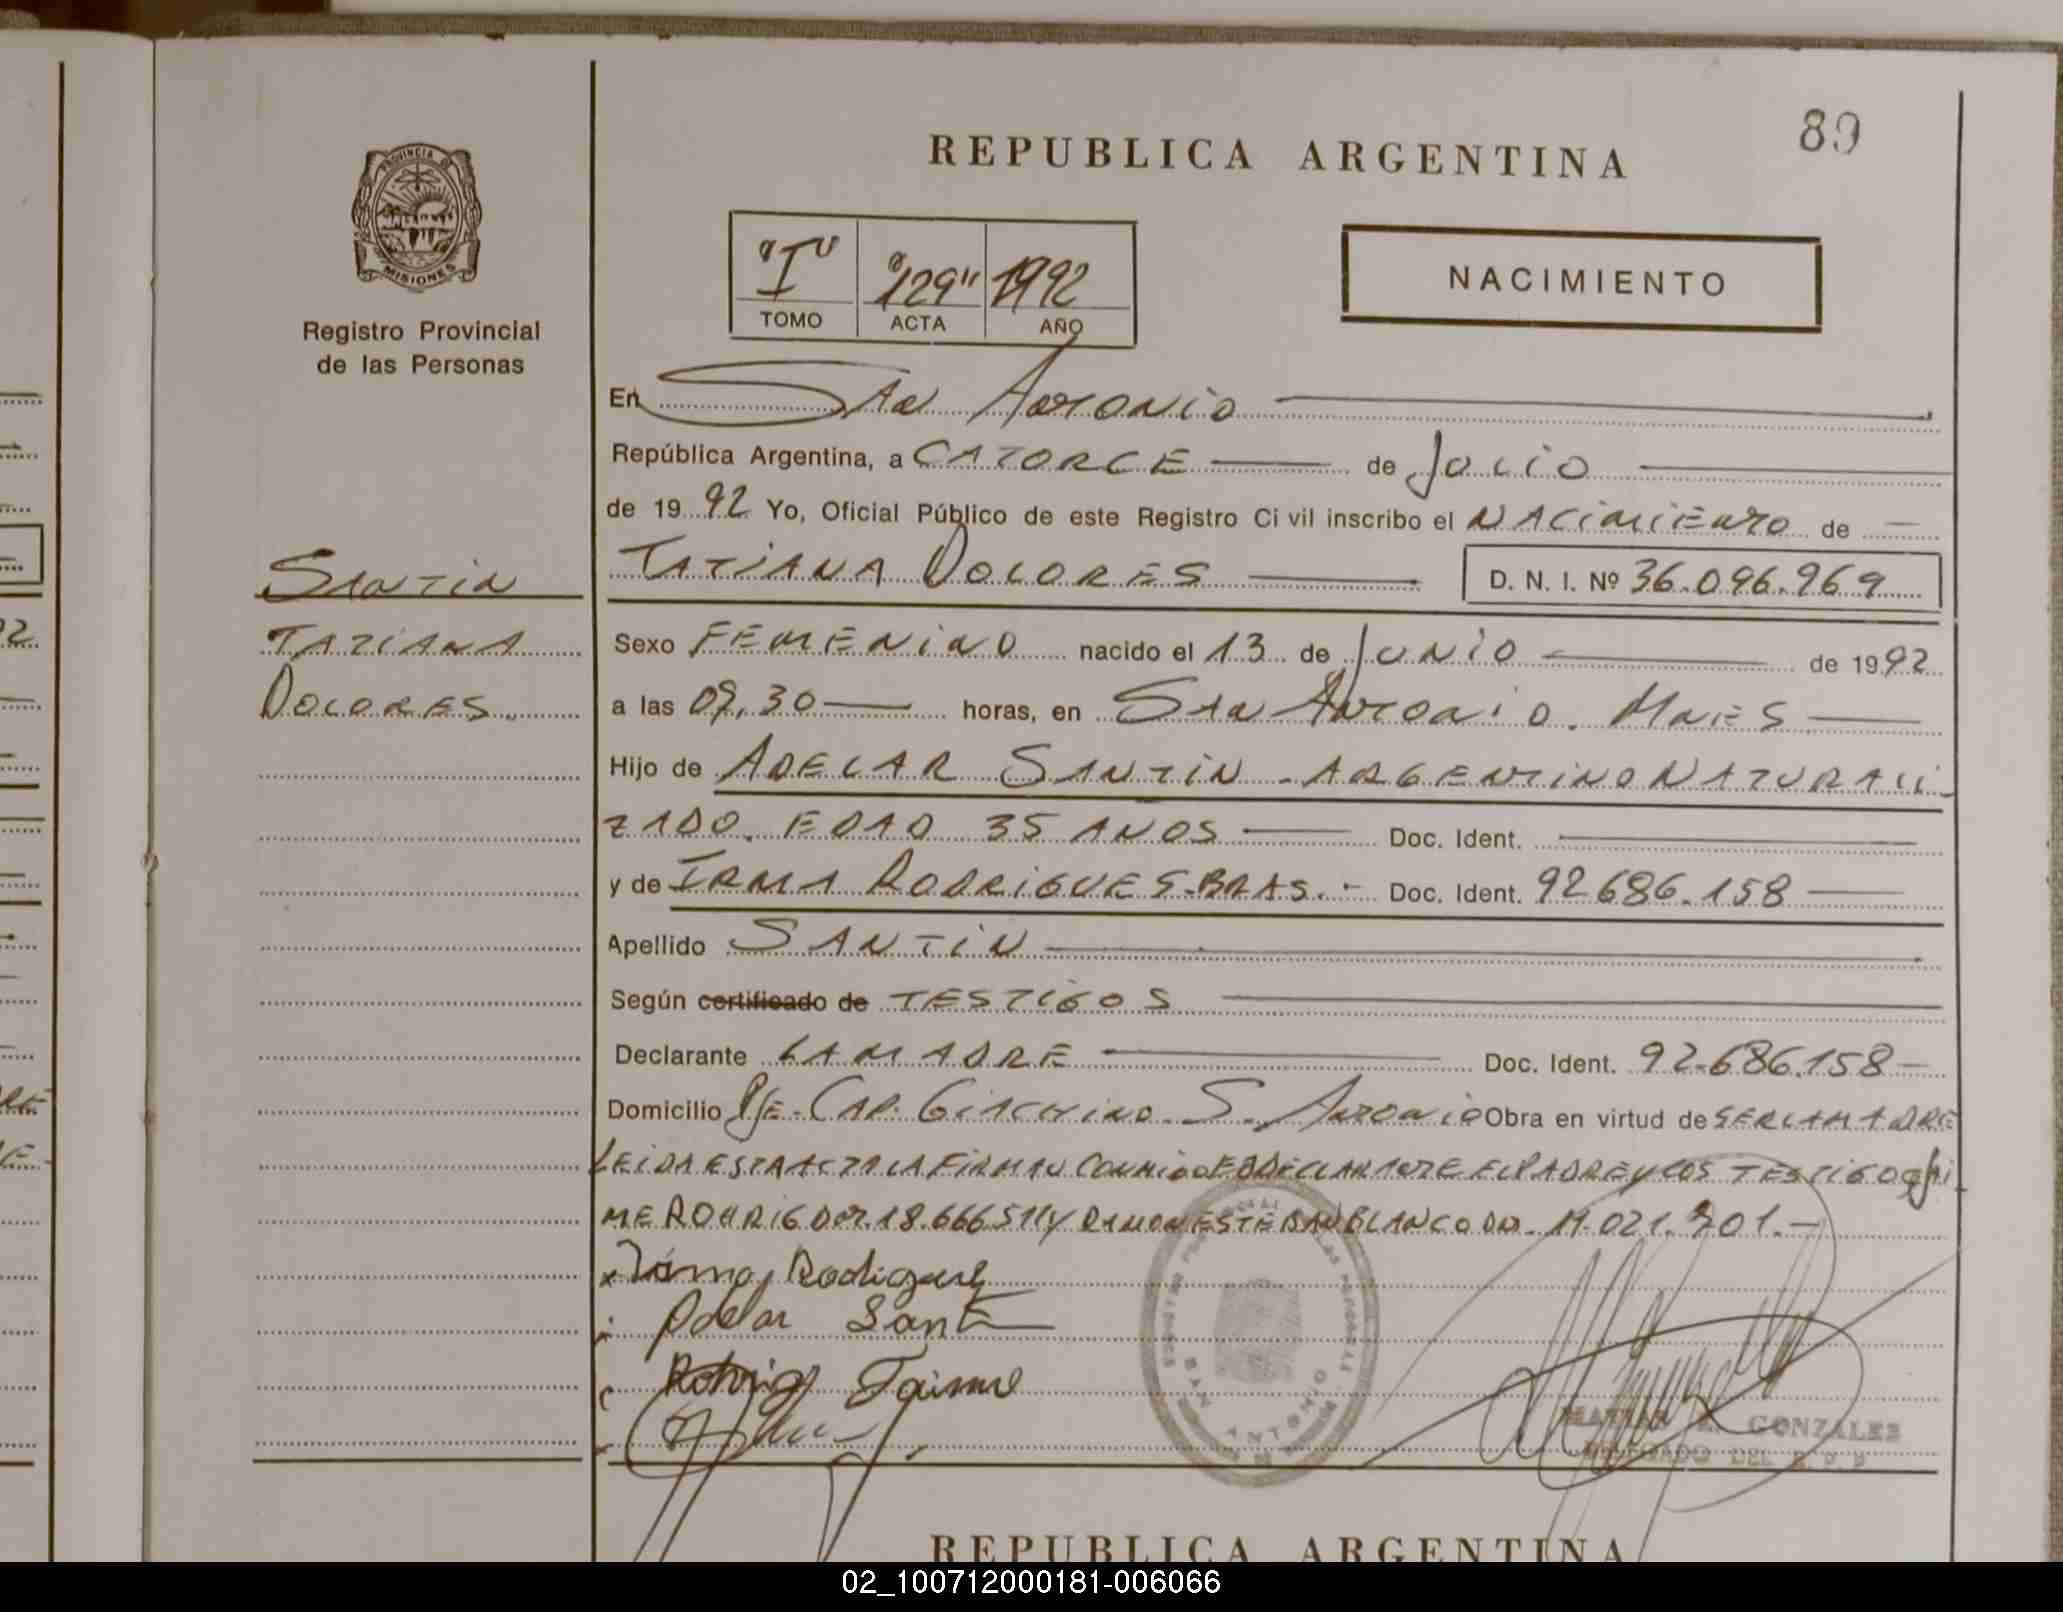 89
REPUBLICA ARGENTINA
PROVINCIA DE
MISIONES
Registro Provincial
de las Personas
"I" "129" 1992
TOMO ACTA AÑO
NACIMIENTO
En San Antonio
República Argentina, a CATORCE de Julio
de 1992 Yo, Oficial Público de este Registro Civil inscribo el NACIMIENTO de
SANTIN
TATIANA
DOLORES
TATIANA DOLORES D. N. I. Nº 36.096.969
Sexo FEMENINO nacido el 13 de Junio de 1992
a las 07,30 horas, en San Antonio. Mnes
Hijo de ADELAR SANTIN - ARGENTINO NATURALI-
ZADO. EDAD 35 ANOS Doc. Ident.
y de IRMA RODRIGUES.BRAS. - Doc. Ident. 92686.158
Apellido SANTIN
Según certificado de TESTIGOS
Declarante LA MADRE Doc. Ident. 92.686.158
Domicilio Pje. Cap. Giachino. S. Antonio Obra en virtud de SER LA MADRE
LEIDA ESTA ACTA LA FIRMAN CONMIGO DECLARANTE EL PADRE Y LOS TESTIGOS
18.666.511 y RAMON ESTEBAN BLANCO
Rodriguez
Adelar Santi
Jaime
SAN ANTONIO
GONZALEZ
DELEGADO DEL R.P.P
REPUBLICA ARGENTINA
02_100712000181-006066